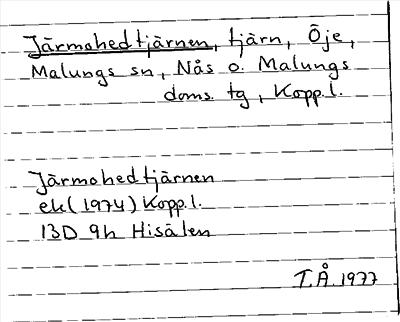 Järmohedtjärnen, tjärn, Öje,
Malungs sn, Nås o. Malungs
doms. tg, Kopp.l.
Järmohedtjärnen
ek (1974) Kopp.l.
13D 9h Hisälen
T.Å. 1977